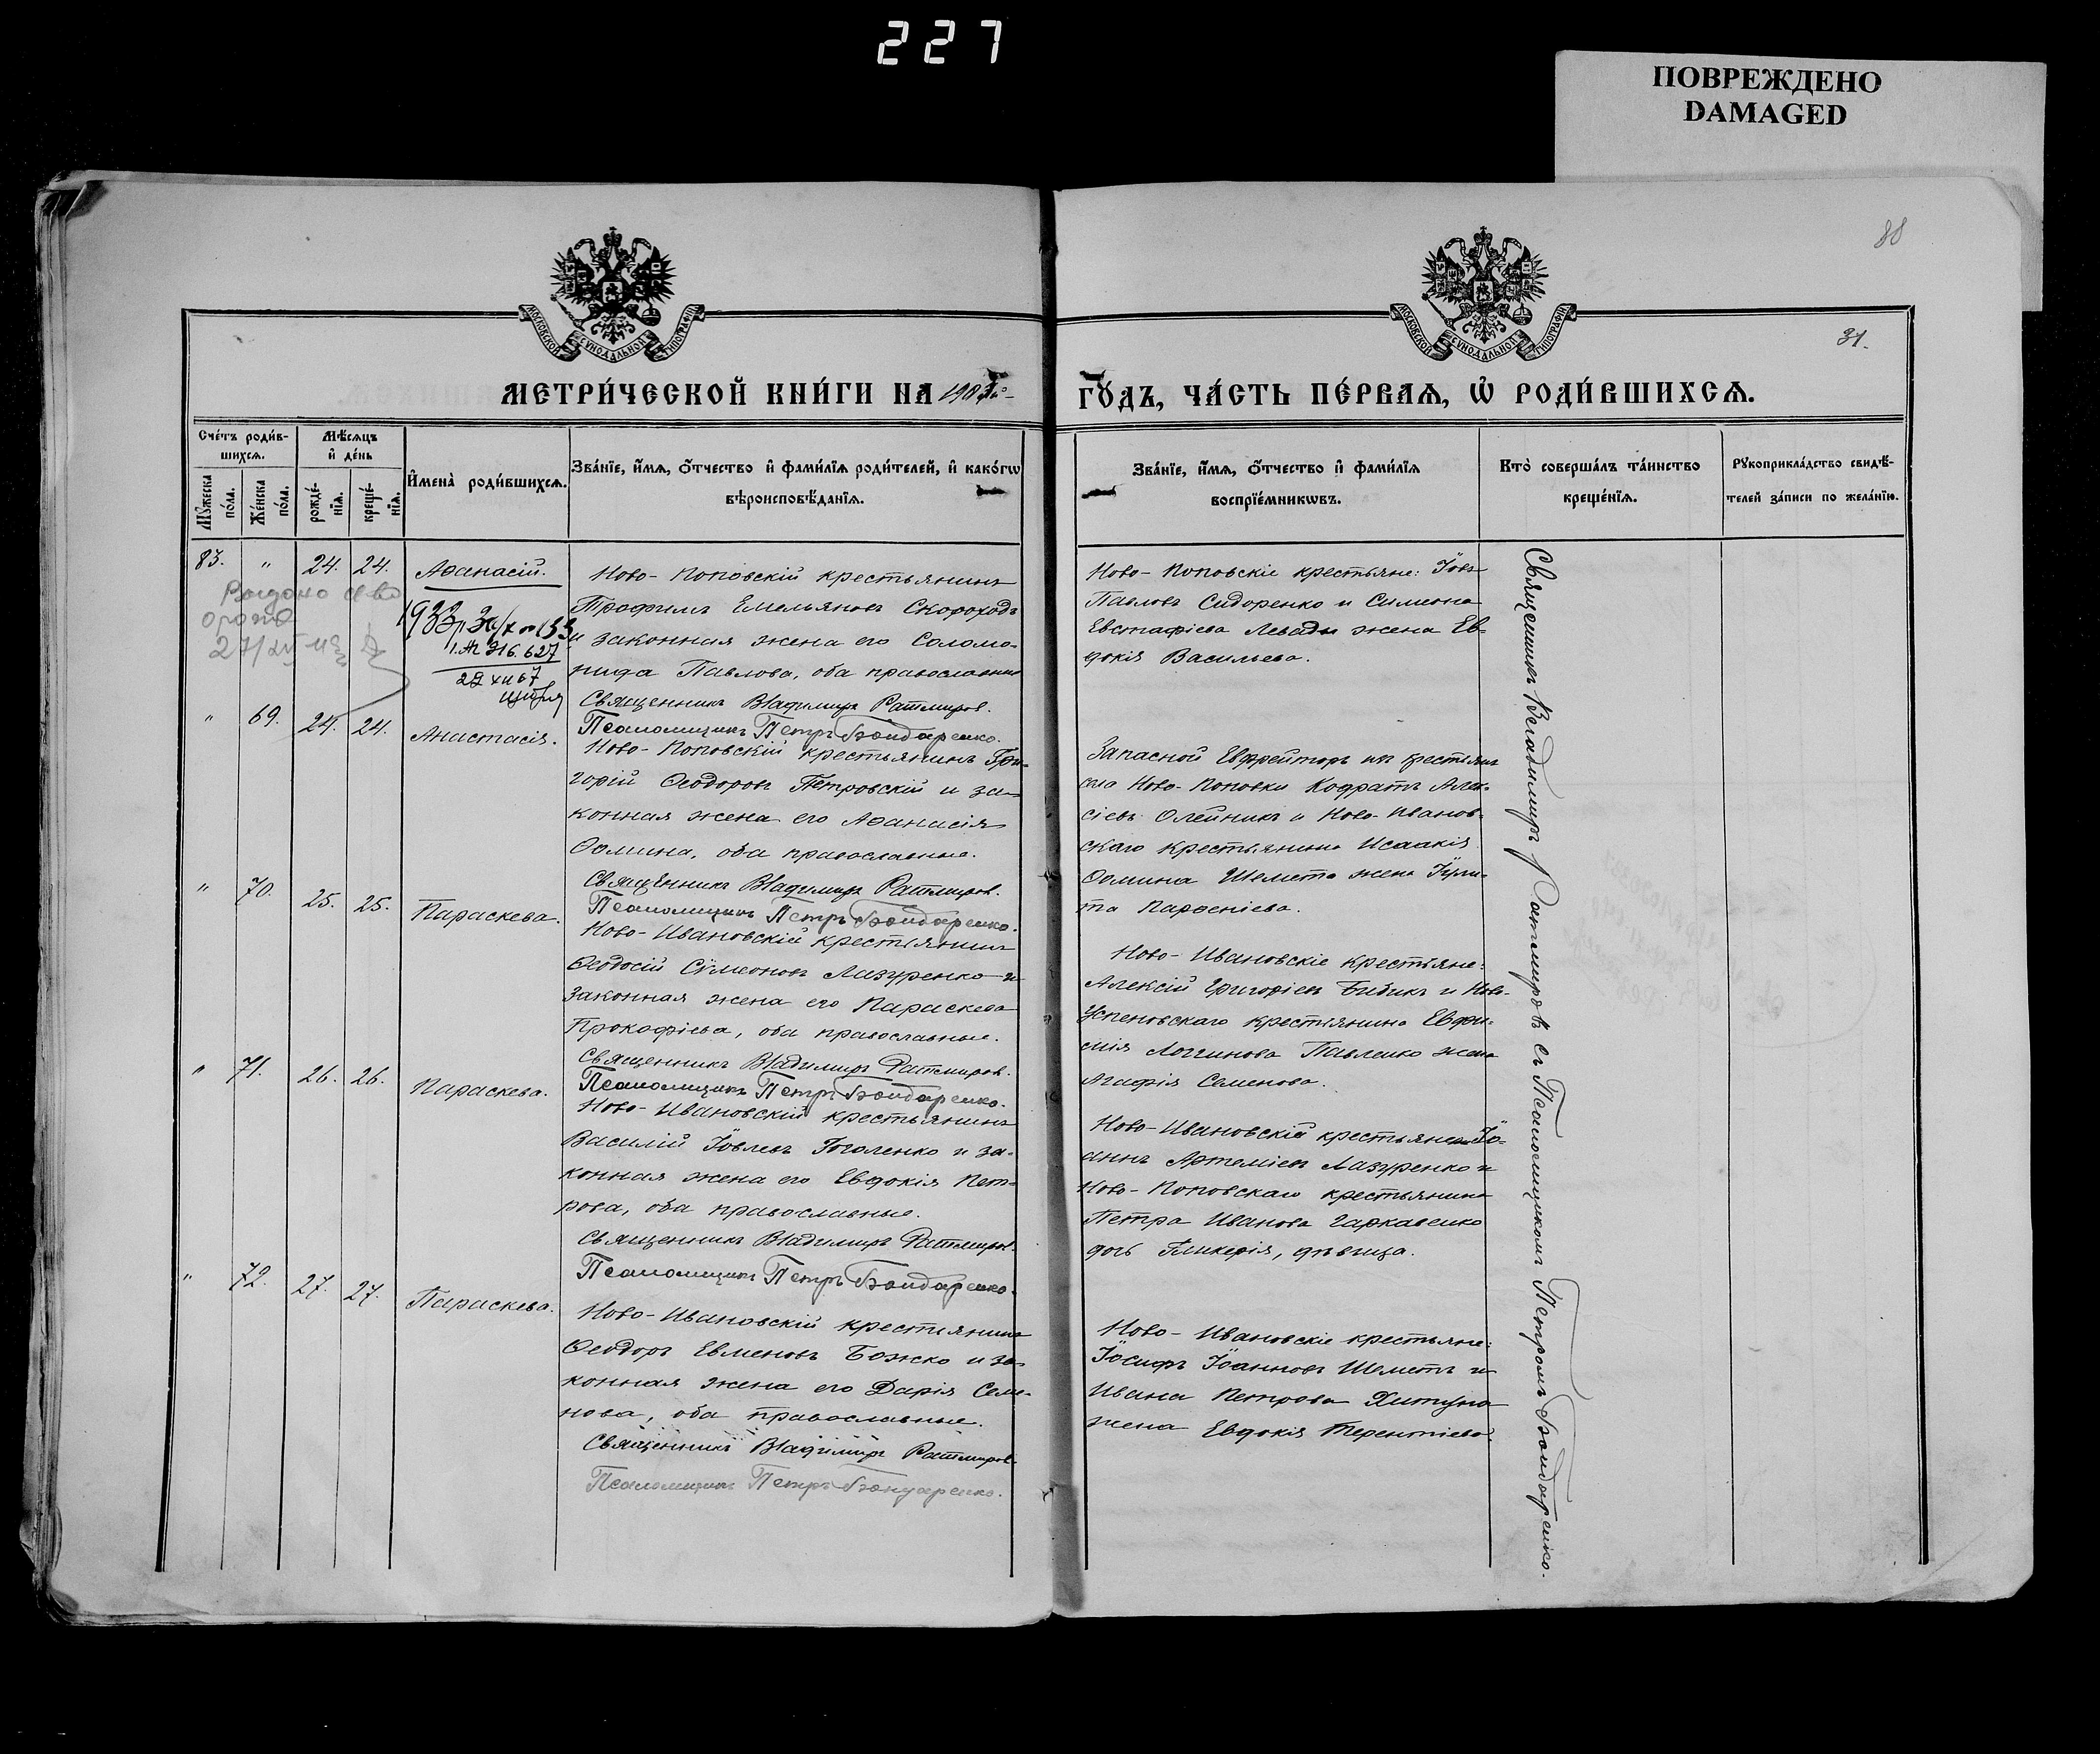 227
ПОВРЕЖДЕНО
DAMAGED
88
31.
МОСКОВСКОЙ СѴНОДАЛЬНОЙ ТИПОГРАФІИ
МОСКОВСКОЙ СѴНОДАЛЬНОЙ ТИПОГРАФІИ
МЕТРИ́ЧЕСКОЙ КНИ́ГИ НА 190
ГО́ДЪ, ЧА́СТЬ ПЕ́РВАѦ, Ѡ҆ РОДИ́ВШИХСѦ.
Сче́тъ роди́в-
шихсѧ.
Мѣ́сѧцъ
и҆ де́нь
Мꙋ́жеска
по́ла.
Же́нска
по́ла.
рожде́-
нїѧ.
креще́-
нїѧ.
И҆мена̀ роди́вшихсѧ.
Зва́нїе, и҆́мѧ, ѻ҆́тчество и҆ фами́лїѧ роди́телей, и҆ како́гѡ
вѣроисповѣ́данїѧ.
Зва́нїе, и҆́мѧ, ѻ҆́тчество и҆ фами́лїѧ
воспрїе́мникѡвъ.
Кто̀ соверша́лъ та́инство
креще́нїѧ.
Рꙋкоприкла́дство свидѣ́-
телей за́писи по жела́нїю.
83. " 24. 24. Аѳанасій.
Ново-Поповскій крестьянинъ
Трофимъ Емельяновъ Скороходъ
и законная жена его Соломо-
нида Павлова, оба православные
Священникъ Владимиръ Ратмиров.
Псаломщикъ Петръ Бондаренко.
Ново-Поповскіе крестьяне: Іовъ
Павловъ Сидоренко и Симеона
Евстафіева Левады жена Ев-
докія Васильева.
" 69. 24. 24. Анастасія.
Ново-Поповскій крестьянинъ Гри-
горій Ѳеодоровъ Петровскій и за-
конная жена его Аѳанасія
Ѳомина, оба православные.
Священникъ Владимиръ Ратмиров.
Псаломщикъ Петръ Бондаренко.
Запасной Ефрейторъ изъ крестьянъ
села Ново-Поповки Кодратъ Алек-
сіевъ Олейникъ и Ново-Иванов-
скаго крестьянина Исаакія
Ѳомина Шемета жена Іули-
та Парѳеніева.
" 70. 25. 25. Параскева.
Ново-Ивановскій крестьянинъ
Ѳеодосій Сѵмеоновъ Лазуренко и
законная жена его Параскева
Прокофіева, оба православные.
Священникъ Владимиръ Ратмиров.
Псаломщикъ Петръ Бондаренко.
Ново-Ивановскіе крестьяне:
Алексій Григоріевъ Бибикъ и Ново-
Успеновскаго крестьянина Евфи-
мія Логгинова Павленко жена
Агафія Семенова.
" 71. 26. 26. Параскева.
Ново-Ивановскій крестьянинъ
Василій Іовлевъ Гоголенко и за-
конная жена его Евдокія Пет-
рова, оба православные.
Священникъ Владимиръ Ратмиров.
Псаломщикъ Петръ Бондаренко.
Ново-Ивановскій крестьянинъ Іо-
аннъ Артеміевъ Лазуренко и
Ново-Поповскаго крестьянина
Петра Иванова Гаркавенко
дочь Гликерія, дѣвица.
" 72. 27. 27. Параскева.
Ново-Ивановскій крестьянинъ
Ѳеодоръ Евменовъ Божко и за-
конная жена его Дарія Семе-
нова, оба православные.
Священникъ Владимиръ Ратмиров.
Псаломщикъ Петръ Бондаренко.
Ново-Ивановскіе крестьяне:
Іосифъ Іоанновъ Шеметъ и
Ивана Петрова Хитуна
жена Евдокія Терентіева.
Священникъ Владимиръ Ратмировъ съ Псаломщикомъ Петромъ Бондаренко.